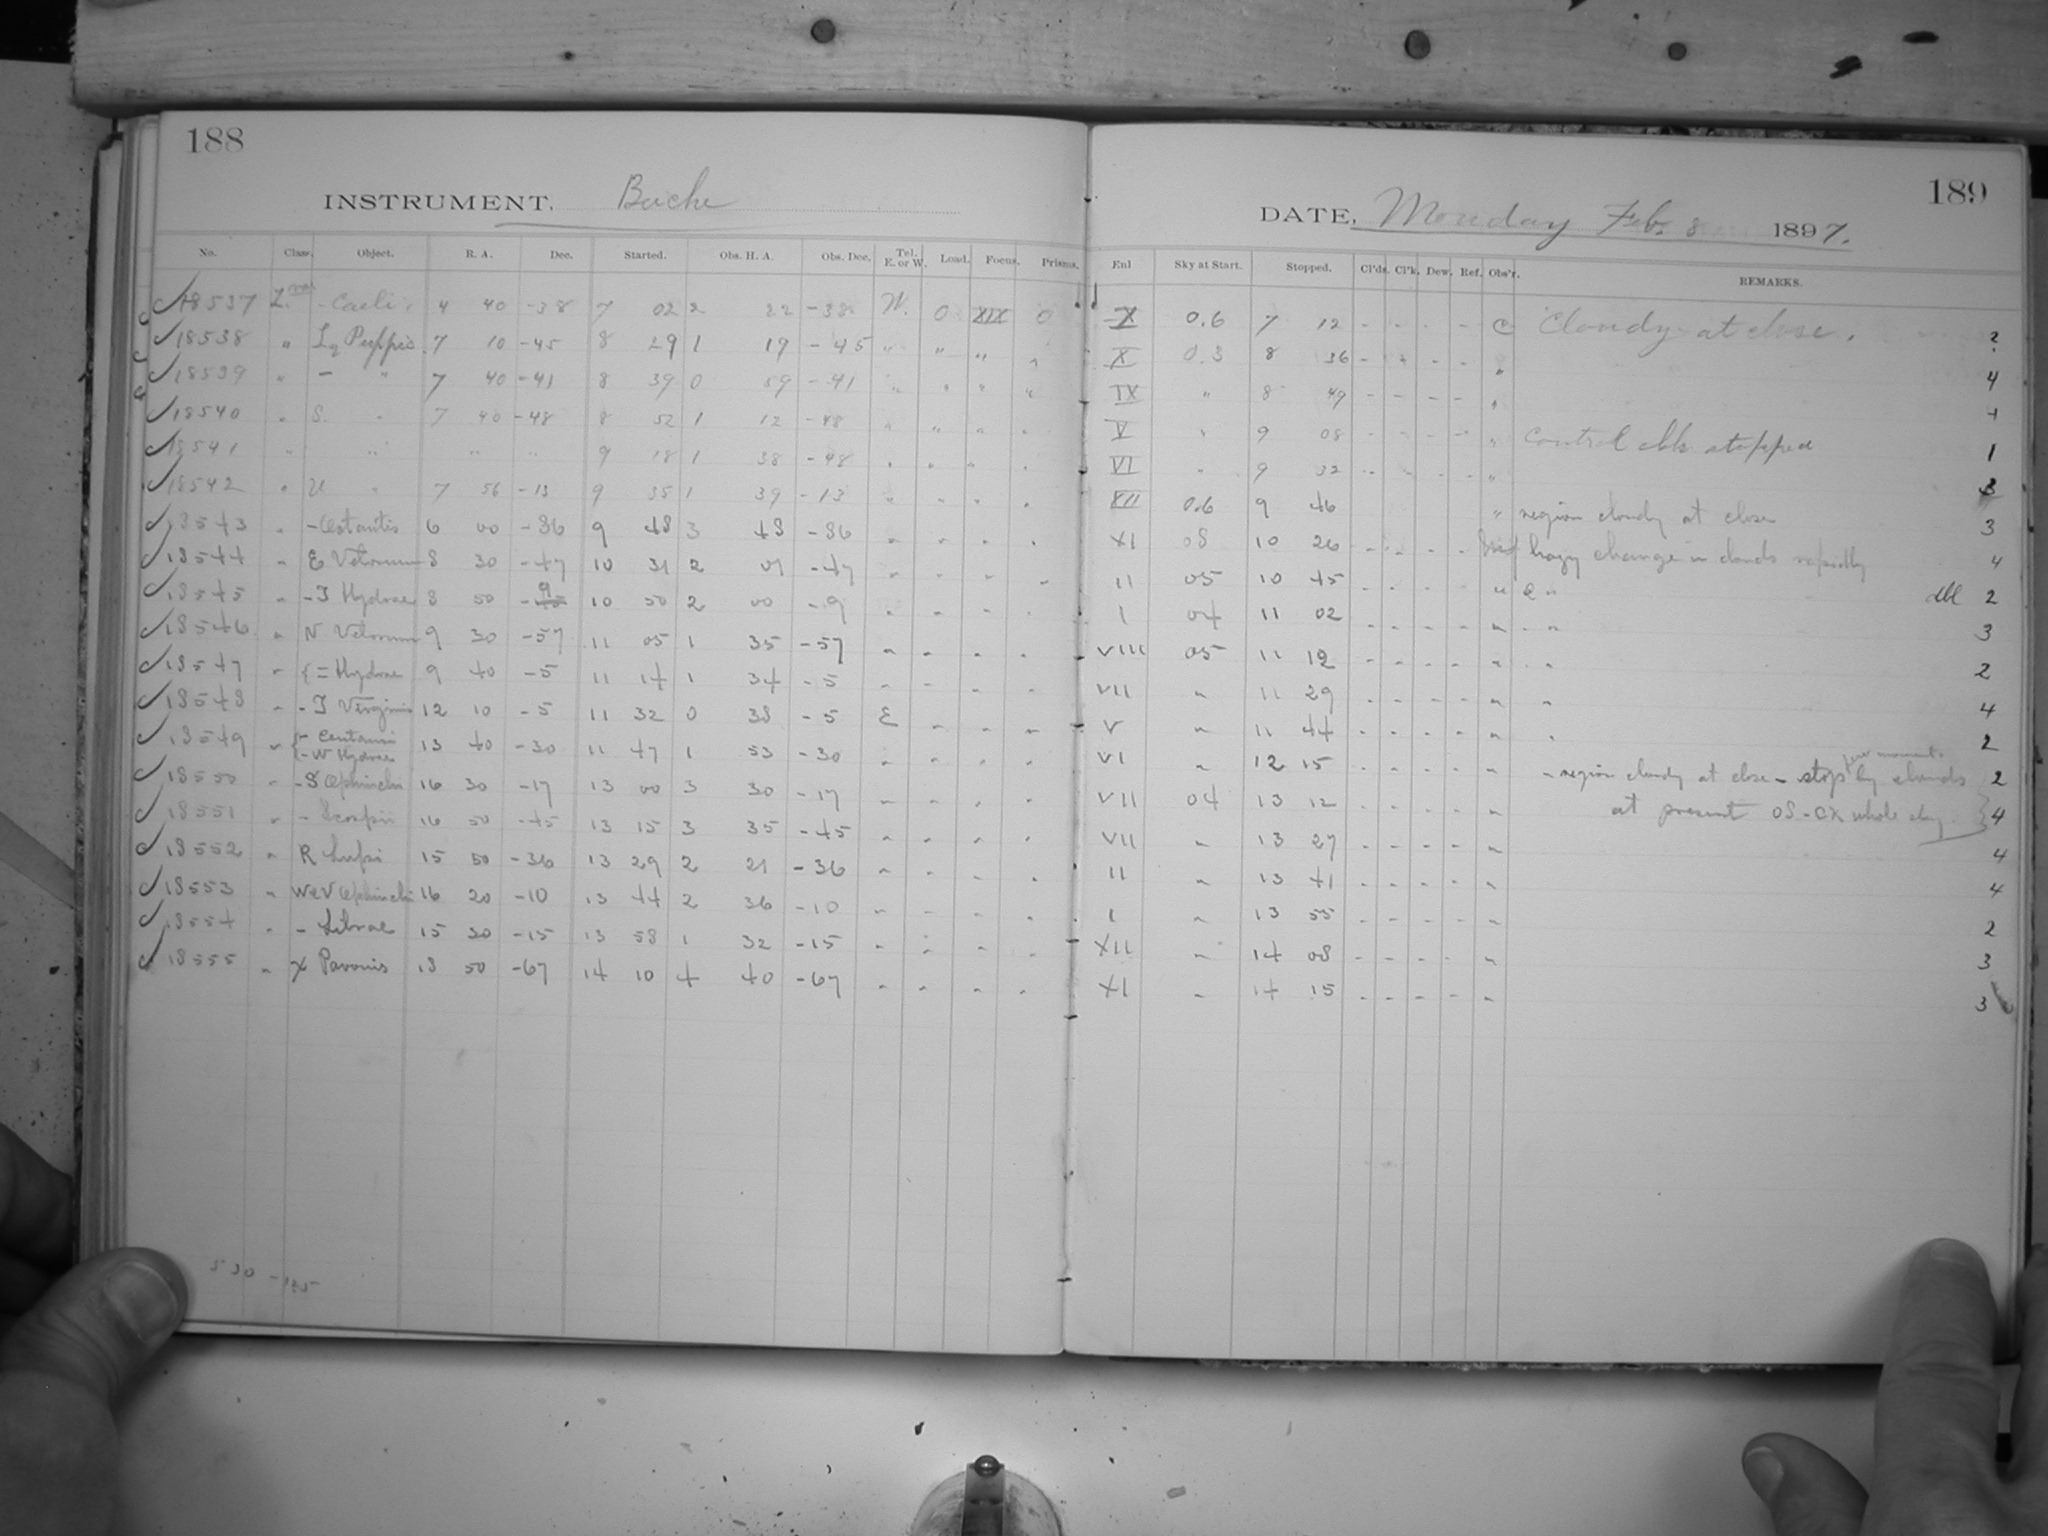 188
INSTRUMENT, Bache
No. Class. Object. R. A. Dec. Started. Obs. H. A. Obs. Dec. Tel. E. or W. Load. Focus. Prisms.
18537 L. var - Caeli. 4 40 -38 7 02 2 22 -38 W. 0 XIX 0
18538 " L2 Puppis 7 10 -45 8 29 1 19 -45 " " " "
18539 " - " 7 40 -41 8 39 0 59 -41 " " " "
18540 " S. " 7 40 -48 8 52 1 12 -48 " " " "
18541 " " " " 9 18 1 38 -48 " " " "
18542 " U " 7 56 -13 9 35 1 39 -13 " " " "
18543 " - Octantis 6 00 -86 9 48 3 48 -86 " " " "
18544 " E Velorum 8 30 -47 10 31 2 01 -47 " " " "
18545 " - T Hydrae 8 50 -9 10 50 2 00 -9 " " " "
18546 " N Velorum 9 30 -57 11 05 1 35 -57 " " " "
18547 " { = Hydrae 9 40 -5 11 14 1 34 -5 " " " "
18548 " - T Virginis 12 10 -5 11 32 0 38 -5 E " " "
18549 " { - Centauri - W Hydrae 13 40 -30 11 47 1 53 -30 " " " "
18550 " - S Ophiuchi 16 30 -17 13 00 3 30 -17 " " " "
18551 " - Scorpii 16 50 -45 13 15 3 35 -45 " " " "
18552 " R Lupi 15 50 -36 13 29 2 21 -36 " " " "
18553 " W & V Ophiuchi 16 20 -10 13 44 2 36 -10 " " " "
18554 " - Librae 15 30 -15 13 58 1 32 -15 " " " "
18555 " χ Pavonis 18 50 -67 14 10 4 40 -67 " " " "
189
DATE, Monday Feb. 8 1897.
Enl Sky at Start. Stopped. Cl'ds. Cl'k. Dew. Ref. Obs'r. REMARKS.
X 0.6 7 12 - - - - C Cloudy at close. 2
X 0.3 8 36 - - - - " 4
IX " 8 49 - - - - " 4
V " 9 08 - - - - " Control clk stopped 1
VI " 9 32 - - - - " 3
XII 0.6 9 46 " region cloudy at close 3
XI 08 10 26 - - - - hazy change in clouds rapidly 4
II 05 10 45 - - - - " " " dbl 2
I 04 11 02 - - - - " " " 3
VIII 05 11 12 - - - - " " " 2
VII " 11 29 - - - - " " 4
V " 11 44 - - - - " " 2
VI " 12 15 - - - - " - region cloudy at close - stop few moments by clouds 2
VII 04 13 12 - - - - " at present 08 - OK whole sky. 4
VII " 13 27 - - - - " 4
II " 13 41 - - - - " 4
I " 13 55 - - - - " 2
XII " 14 08 - - - - " 3
XI " 14 15 - - - - " 3